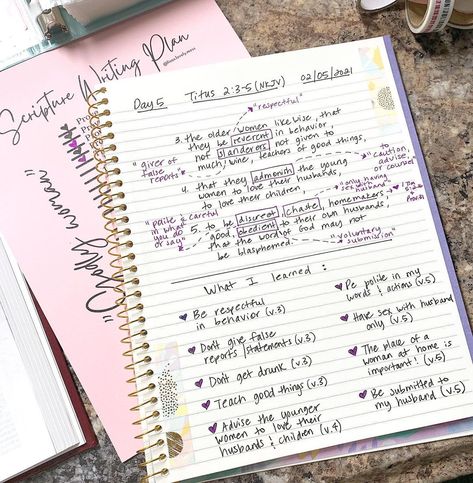 Scripture Writing Plan
"Godly woman"
Day 5 Titus 2:3-5 (NKJV) 02/05/2021
"respectful"
3. the older women likewise, that
they be reverent in behavior,
not slanderers not given to
much wine, teachers of good things,
"giver of
false
reports"
4. that they admonish the young
women to love their husbands,
to love their children,
"to caution,
advise,
or counsel"
"only having
sex with
husband"
"polite & careful
in what
you do
or say"
5. to be discreet, chaste, homemakers,
good, obedient to their own husbands,
that the word of God may not
be blasphemed.
"voluntary
submission"
What I learned:
Be respectful
in behavior (v.3)
Don't give false
reports/statements (v.3)
Don't get drunk (v.3)
Teach good things (v.3)
Advise the younger
women to love their
husbands & children (v.4)
Be polite in my
words & actions (v.5)
Have sex with husband
only (v.5)
The place of a
woman at home is
important! (v.5)
Be submitted to
my husband (v.5)